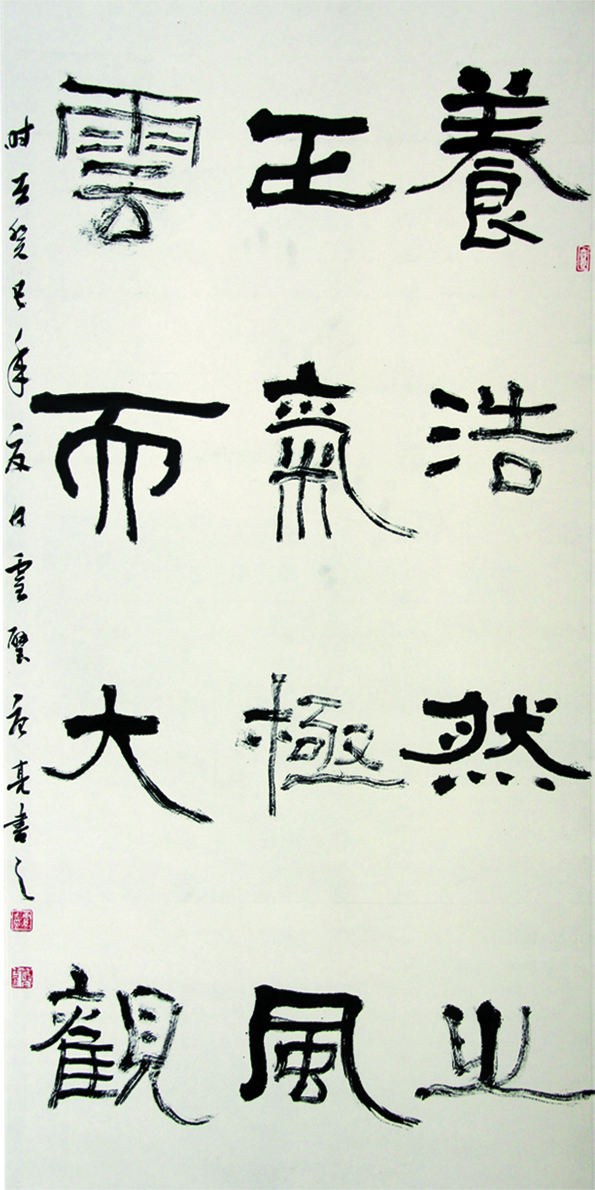 養浩然之
正氣極風
雲而大觀
时在癸巳年夏日雲壁
亮書之